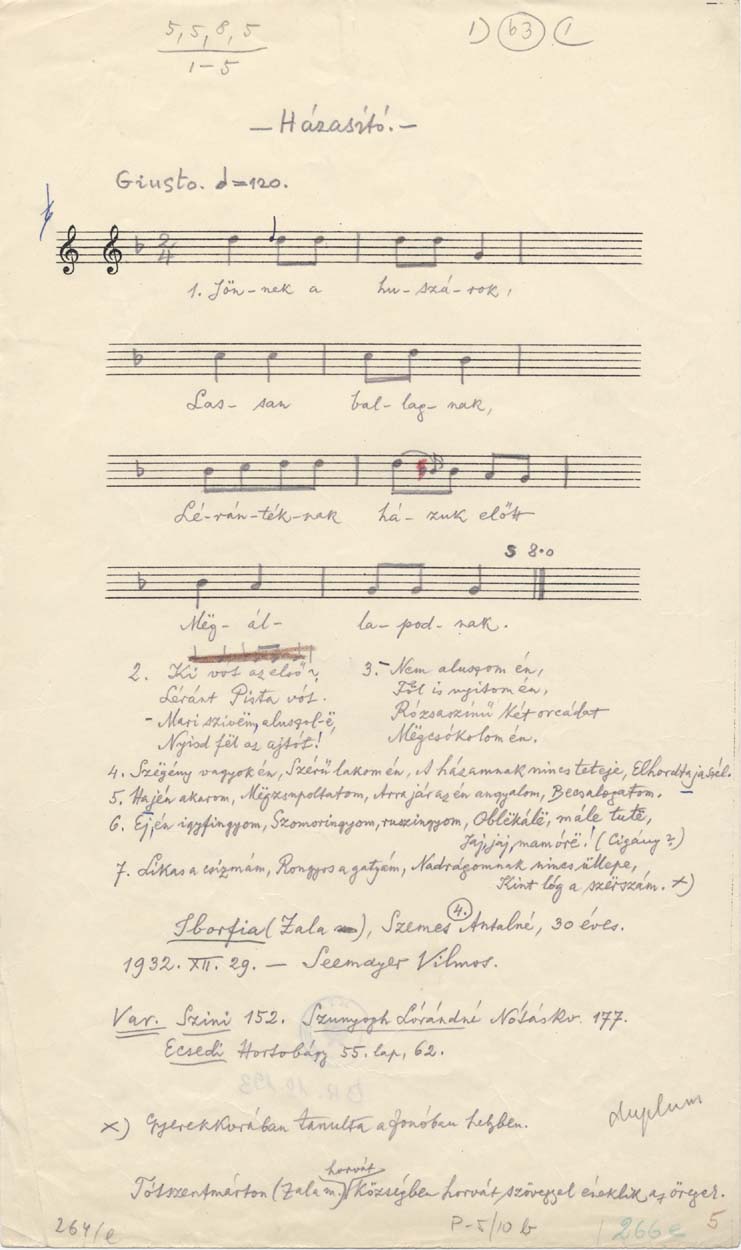 5, 5, 8, 5
1-5
1) 63 (
— Házasító. —
Giusto. ♩=120.
1. Jön-nek a hu-szá-rok,
Las-san bal-lag-nak,
Lé-rán-ték-nak há-zuk előtt
Mëg-ál-la-pod-nak.
S 8.0
2. Ki vót az első?
Léránt Pista vót.
- Mari szivëm, aluszol-ë,
Nyisd fël az ajtót!
3.- Nem aluszom én,
Fël is nyitom én,
Rózsaszínű két orcádat
Mëgcsókolom én.
4. Szëgény vagyok én, Szérűn lakom én, A házamnak nincs teteje, Elhordta ja szél.
5. Ha jén akarom, Mëgzsupoltatom, Arra jár az én angyalom, Becsalogatom.
6. Ej, én igyfingyom, Szomoringyom, ruszingyom, Oblikálë, mále tute,
Jaj, jaj, mamórë! (Cigány?)
7. Likas a csizmám, Rongyos a gatyám, Nadrágomnak nincs üllepe,
Kint lóg a szërszám. x)
Iborfia (Zala m.), Szemes Antalné, 30 éves.
4.
1932. XII. 29. — Seemayer Vilmos.
Var. Szini 152. Szunyogh Lórándné Nótáskv. 177.
Ecsedi Hortobágy 55. lap, 62.
x) Gyerekkorában tanulta a fonóban helyben.
duplum
horvát
Tótszentmárton (Zala m.) községben horvát szöveggel éneklik az öregek.
264/e
P-5/10 b
266e
5